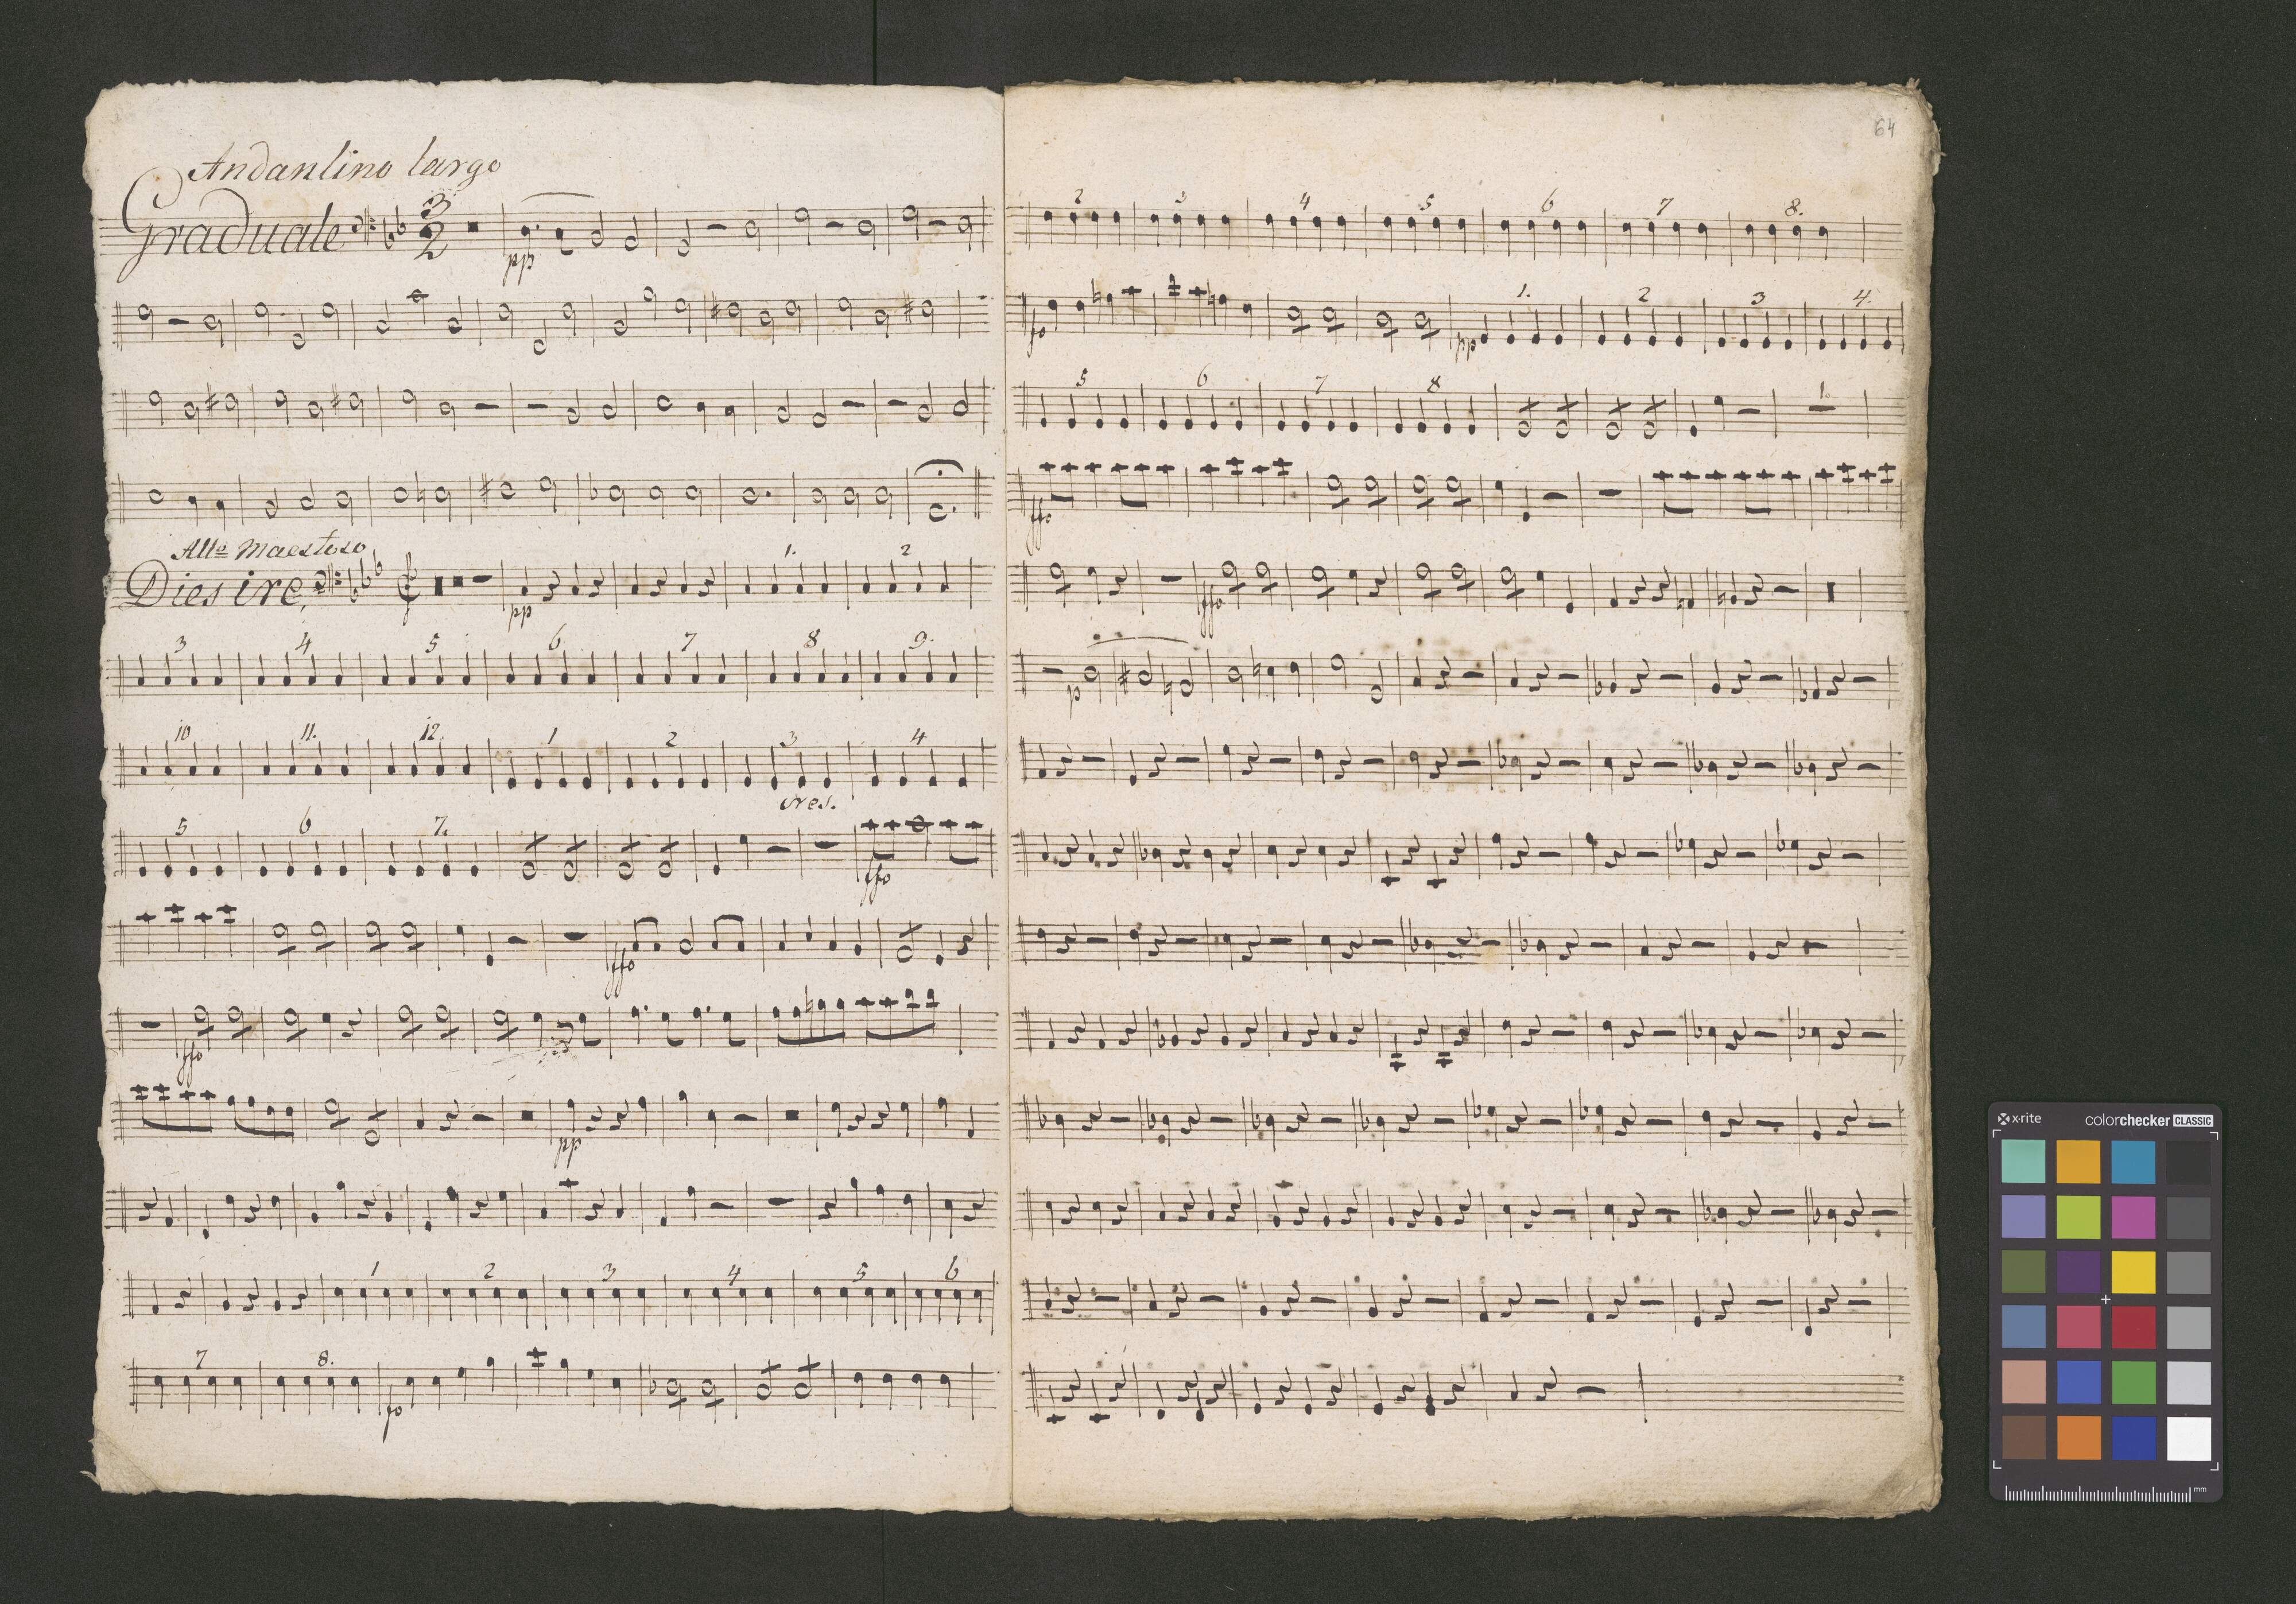 Andantino largo
Graduale 3 2
pp
Allo Maestoso
Dies ire,
pp 1. 2
3 4 5 6 7 8 9.
10 11. 12. 1 2 3 4
cres.
5 6 7.
ffo
ffo
ffo
pp
1 2 3 4 5 6
7 8.
fo
64
2 3 4 5 6 7 8.
fo pp 1. 2 3 4.
5 6 7 8 1.
ffo
ffo
p
x-rite colorchecker CLASSIC
mm